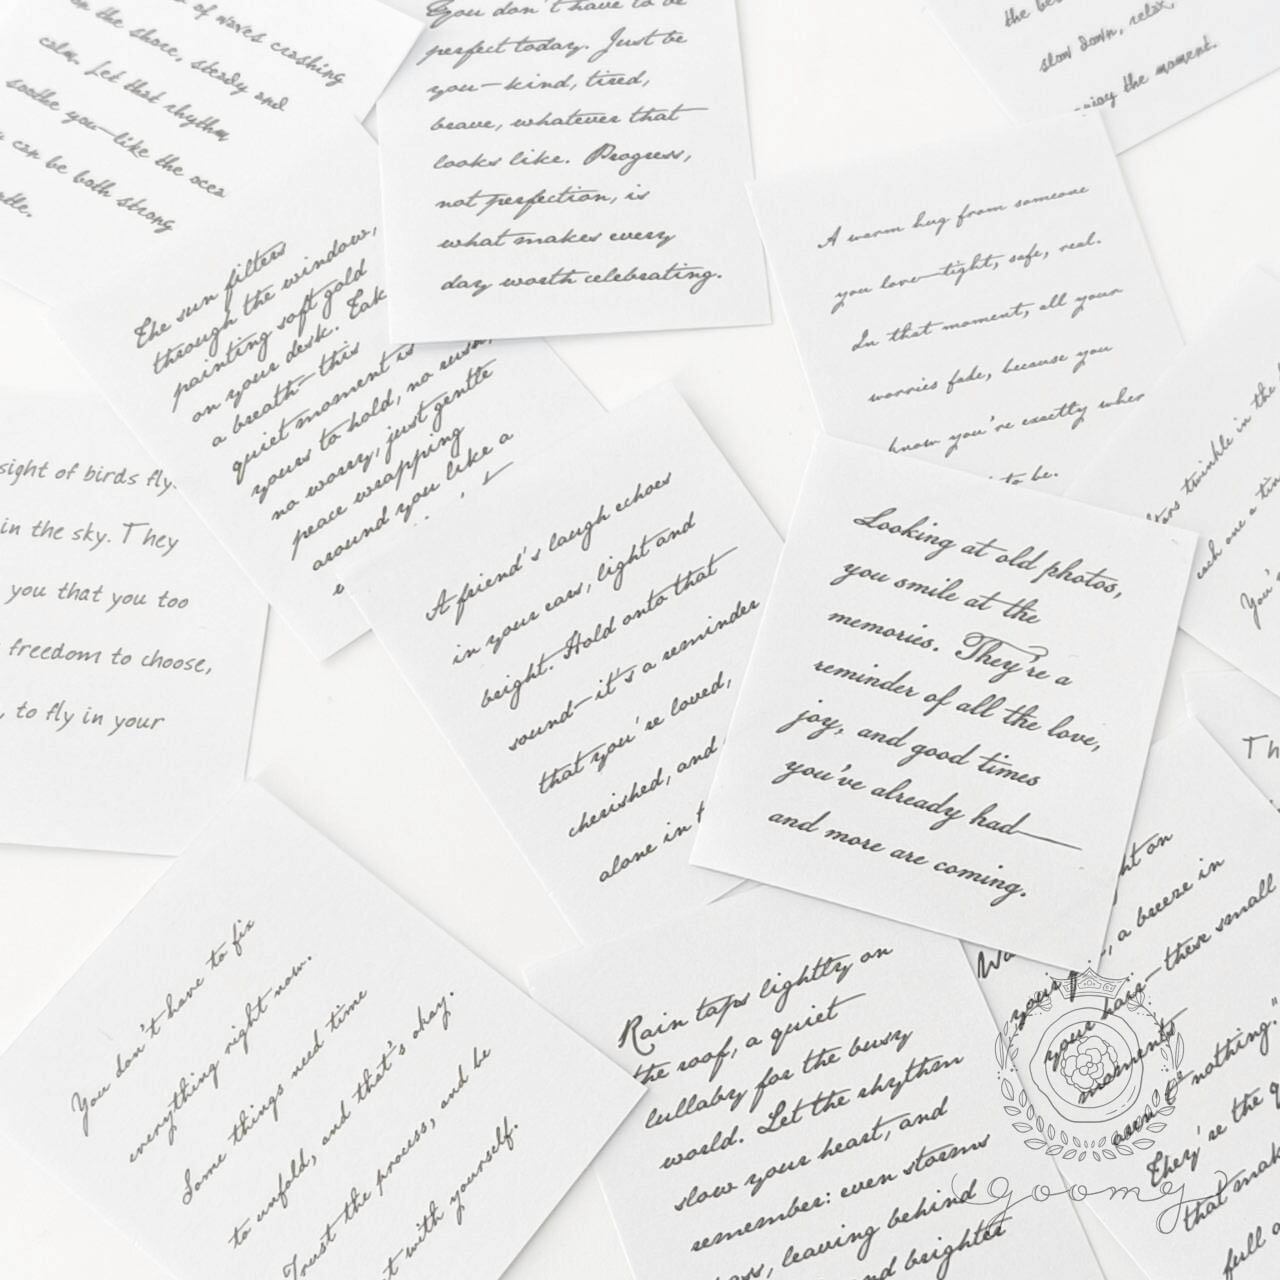 of waves crashing
on the shore, steady and
calm. Let that rhythm
soothe you—like the ocea
can be both strong
You don't have to be
perfect today. Just be
you—kind, tired,
brave, whatever that
looks like. Progress,
not perfection, is
what makes every
day worth celebrating.
the bes
slow down, relax,
enjoy the moment.
A warm hug from someone
you love—tight, safe, real.
In that moment, all your
worries fade, because you
know you're exactly wher
to be.
The sun filters
through the window,
painting soft gold
on your desk. Tak
a breath—this
quiet moment is
yours to hold, no rush,
no worry, just gentle
peace wrapping
around you like a
sight of birds fly
in the sky. They
you that you too
freedom to choose,
, to fly in your
A friend's laugh echoes
in your ears, light and
bright. Hold onto that
sound—it's a reminder
that you're loved,
cherished, and
alone in t
Looking at old photos,
you smile at the
memories. They're a
reminder of all the love,
joy, and good times
you've already had—
and more are coming.
stars twinkle in the
each one a tin
You'
Th
You don't have to fix
everything right now.
Some things need time
to unfold, and that's okay.
Trust the process, and be
t with yourself.
Rain taps lightly on
the roof, a quiet
lullaby for the busy
world. Let the rhythm
slow your heart, and
remember: even storms
pass, leaving behind
nd brighter
ht on
a breeze in
your hair—these small
moments
aren't "nothing."
They're the q
that mak
full o
goomy